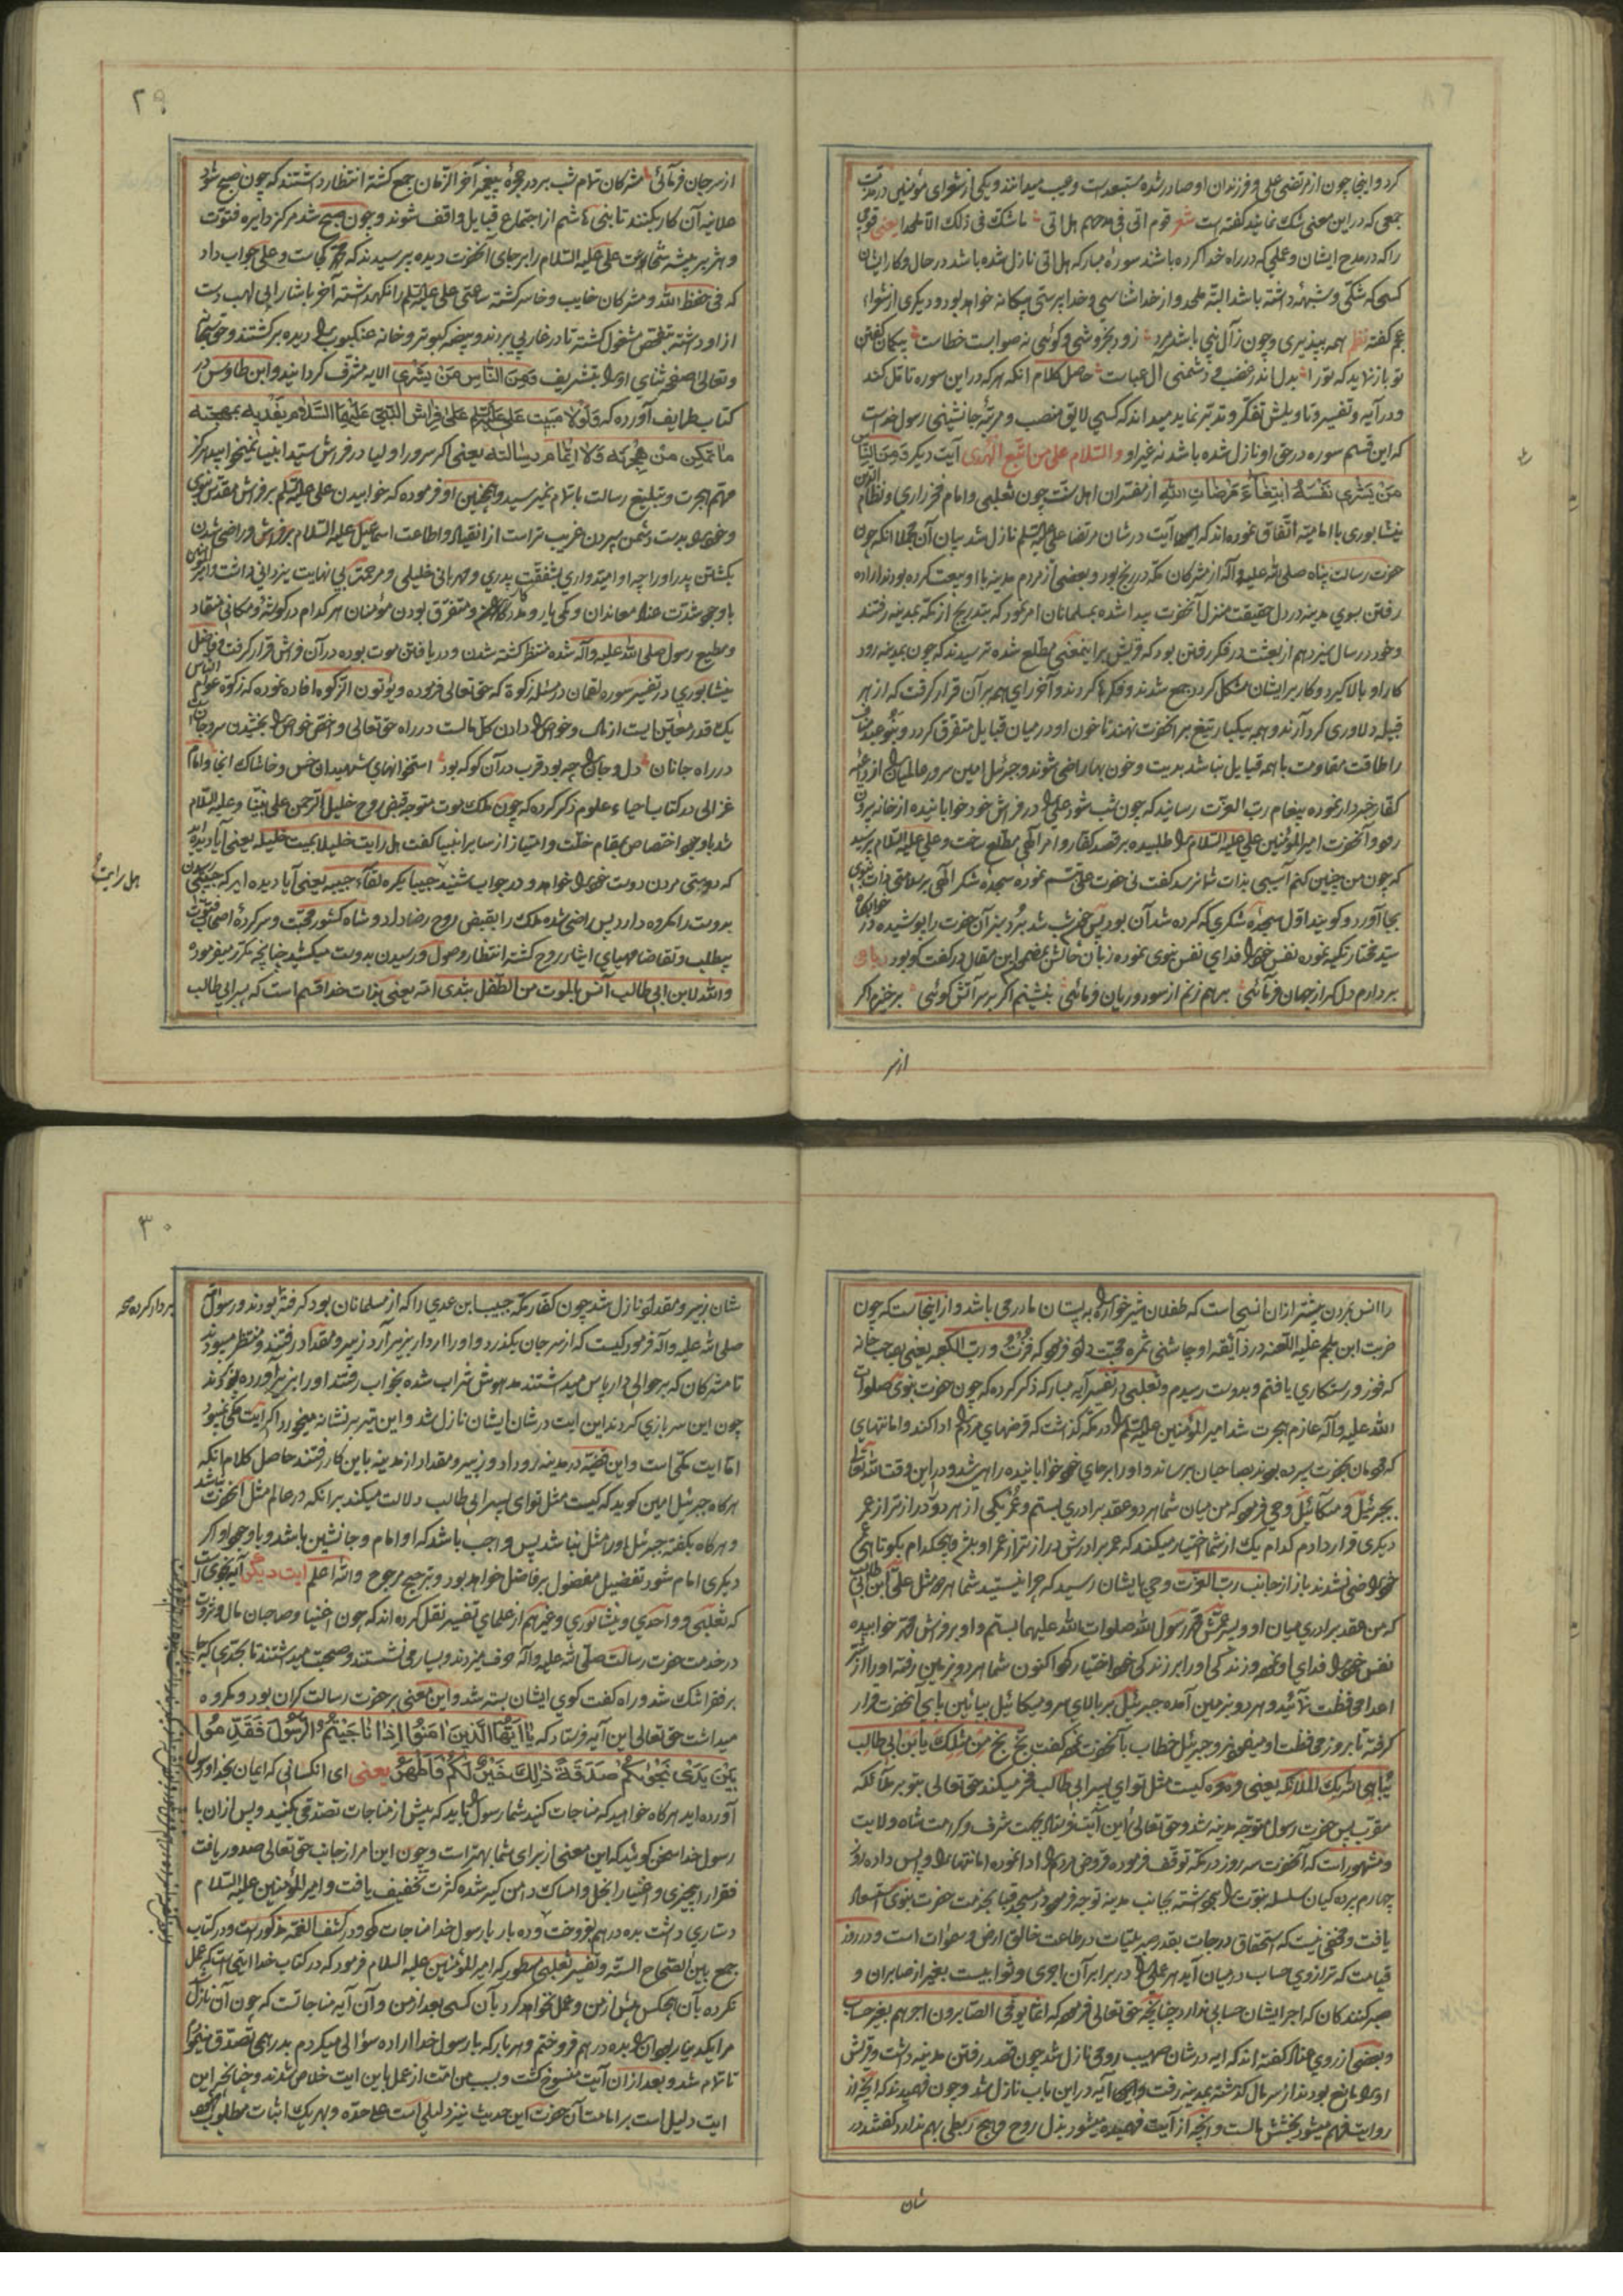 کرد و اینجا چون از مرتضی علی و فرزندان او صادر شده مستبعد است و عجب میدانند و یکی از شعرای مؤمنین در مذمت
جمعی که در این معنی شک نمایند گفته است شعر قوم اتی فی مدحهم هل اتی ما شک فی ذلک الا ملحد یعنی قومی
را که در مدح ایشان و عملی که در راه خدا کرده باشند سورۀ مبارکه هل اتی نازل شده باشد در حال و کار ایشان
کسی که شکی و شبهۀ داشته باشد البته ملحد و از خداشناسی و خداپرستی بیکانه خواهد بود و دیگری از شعراء
عجم گفته نظم همه بپذیری و چون ز آل نبی باشد مرد زود بخروشی و کوئی نه صوابست خطاست بیکمان گفتن
تو باز نماید که تو را بدل اندر غضب و دشمنی ال عباست حاصل کلام انکه هر که در این سوره تامل کند
و در آیه و تفسیر و تاویلش تفکر و تدبر نماید میداند که کسی لایق منصب و مرتبۀ جانشینی رسول خداست
که این قسم سوره در حق او نازل شده باشد نه غیر او والسلام علی من اتبع الهدی آیت دیکر وَمِنَ النّاس
مَنْ یَشْری نَفْسَهُ ابْتِغٰاءَ مَرْضاتِ اللّهِ از مفسران اهل سنت چون ثعلبی و امام فخر رازی و نظام الدین
نیشابوری با امامیه اتفاق نموده‌اند که این آیت در شان مرتضا علی علیه السلم نازل شد بیان آن مجملا انکه چون
حضرت رسالت پناه صلی الله علیه و آله از مشرکان مکه در رنج بود و بعضی از مردم مدینه با او بیعت کرده بودند اراده
رفتن بسوی مدینه در دل حقیقت منزل آنحضرت پیدا شده بمسلمانان امر نمود که بتدریج از مکه بمدینه رفتند
و خود در سال سیزدهم از بعثت در فکر رفتن بود که قریش بر اینمعنی مطلع شده ترسیدند که چون بمدینه رود
کار او بالا کیرد و کار بر ایشان مشکل کردد جمع شدند و فکرها کردند و آخر رای همه بر آن قرار کرفت که از هر
قبیله دلاوری کرد آرند و همه بیکبار تیغ بر آنحضرت نهند تا خون او در میان قبایل متفرق کردد و بنو عبد مناف
را طاقت مقاومت با همه قبایل نباشد بدیت و خون بها راضی شوند و جبرئیل امین سرور عالمیان را از داعیه
کفار خبردار نموده پیغام رب العزت رسانید که چون شب شود علی را در فراش خود خوابانیده از خانه بیرون
رود و آنحضرت امیر المؤمنین علی علیه السلام را طلبیده بر قصد کفار و امر الهی مطلع ساخت و علی علیه السلام پرسید
که چون من چنین کنم آسیبی بذات شما نرسد گفت نی حضرت علی تبسم نموده سجدۀ شکر الهی بر سلامتی ذات نبوی
بجا آورد و گویند اول سجدۀ شکری که کرده شد آن بود پس چون شب شد بُرد سبز آن حضرت را پوشیده در خوابگاه
سید مختار تکیه نموده نفس خود را فدای نفس نبوی نموده زبان حالش بمضمون این مقال در گفت و گو بود رباعی
بردارم دل گر از جهان فرمائی برهم زنم از سود و زیان فرمائی بنشینم اگر بر سر آتش گوئی برخیزم اگر
از سر
٢٩
از سر جان فرمائی مشرکان تمام شب بر در حجرۀ پیغمبر آخر الزمان جمع کشته انتظار داشتند که چون صبح شود
علانیه آن کار بکنند تا بنی هاشم از اجتماع قبایل واقف شوند و چون صبح شد مرکز دایره فتوت
و هزبر بیشه شجاعت علی علیه السلام را بر جای آنحضرت دیده پرسیدند که محمد کجاست و علی جواب داد
که فی حفظ الله و مشرکان خایب و خاسر کشته ساعتی علی علیه السلم را نگهداشته آخر باشارۀ ابی لهب دست
از او داشته بتفحص مشغول کشته تا در غار پی بردند و بیضه کبوتر و خانه عنکبوت را دیده برکشتند و حق سبحانه
و تعالی صفحه ثنای او را بتشریف وَمِنَ النّاسِ مَنْ یَشْری الایه مشرف کردانید و ابن طاوس در
کتاب طرایف آورده که وَلَوْلا مَبیت علی علیه السلم عَلیٰ فِراش النّبی عَلَیْهِمَا السّلام یفدیه بمهجته
ما تمکن من هِجرته وَلا اِتمام رسالته یعنی اکر سرور اولیا در فراش سید انبیا نمیخوابید هرکز
مهم هجرت و تبلیغ رسالت باتمام نمیرسید و همچنین او فرموده که خوابیدن علی علیه السلم بر فراش مقدس نبوی
و خود را بدست دشمن سپردن غریب‌تر است از انقیاد و اطاعت اسمعیل علیه السلام بر فروش و راضی شدن
بکشتن پدر او را چه او امیدواری بشفقت پدری و مهربانی خلیلی و مرحمت بی نهایت یزدانی داشت و امیر المؤمنین
با وجود شدت عناد معاندان و کمی یار و مددکار و متفرق بودن مؤمنان هر کدام در گوشۀ و مکانی منقاد
و مطیع رسول صلی الله علیه و آله شده منتظر کشته شدن و دریافتن موت بوده در آن فراش قرار کرفت و فاضل
نیشابوری در تفسیر سوره لقمان در مسئله زکوة که حق تعالی فرموده و یؤتون الزکوه افاده نموده که زکوة عوام الناس
یک قدر معین است از مال و خواص را دادن کل مالست در راه حق تعالی و اخص خواص را بخشیدن سر و جان
در راه جانان دل و جان را چه بود قرب در آن کو که بود استخوانهای شهیدان خس و خاشاک انجا و امام
غزالی در کتاب احیاء علوم ذکر کرده که چون ملک موت متوجه قبض روح خلیل الرحمن علی نبینا و علیه السلام
شد با وجود اختصاص بمقام خلت و امتیاز از سایر انبیا گفت هل رایت خلیلا یمیت خلیله یعنی آیا دیده اید
که دوستی مردن دوست خود را خواهد و در جواب شنید حبیبا یکره لقاء حبیبه یعنی آیا دیده اید که حبیبی رسیدن
بدوست را مکروه دارد پس راضی شده ملک را بقبض روح رضا داد و شاه کشور محبت و سرکردۀ اصحاب فتوت
بی‌طلب و تقاضا مهیای ایثار روح کشته انتظار وصول و رسیدن بدوست میکشید چنانچه مکرر میفرموده
والله لابن ابی طالب آنس بالموت من الطفل بثدی امه یعنی بذات خدا قسم است که پسر ابی طالب
هل رایت
را انس بمردن بیشتر از ان انسی است که طفلان شیرخواره را به پستان مادر می باشد و از اینجاست که چون
ضربت ابن ملجم علیه اللعنه در ذائقه او چاشنی ثمره محبت داد فرمود که فُزْتُ و رب الکعبه یعنی بصاحب خانه
که فوز و رستکاری یافتم و بدوست رسیدم و ثعلبی در تفسیر آیه مبارکه ذکر کرده که چون حضرت نبوی صلوات
الله علیه و آله عازم هجرت شد امیر المؤمنین علیه السلم را در مکه گذاشت که قرضهای مردم را ادا کند و امانتهای
که مردمان بحضرت سپرده بودند بصاحبان برساند و او را بر جای خود خوابانیده راهی شد و در این وقت الله تعالی
بجبرئیل و میکائیل وحی فرمود که من میان شما هر دو عقد برادری بستم و عمر یکی از هر دو دراز تر از عمر
دیگری قرار دادم کدام یک از شما اختیار میکند که عمر برادرش دراز تر از عمر او باشد و هیچکدام بکوتاهی عمر
خود راضی نشدند باز از جانب رب العزت وحی بایشان رسید که چرا نیستید شما هر دو مثل علی ابن ابی طالب
که من عقد برادری میان او و پسر عمش محمد رسول الله صلوات الله علیهما بستم و او بر فراش محمد خوابیده
نفس خود را فدای او نمود و زندگی او را بر زندگی خود اختیار کرد اکنون شما هر دو بزمین رفته او را از شر
اعدا محافظت نمائید و هر دو بزمین آمده جبرئیل بر بالای سر و میکائیل بپائین پای آنحضرت قرار
گرفته تا بروز محافظت او مینمودند و جبرئیل خطاب بآنحضرت نموده گفت بَخ بَخ مَن مثلک یا بن ابی طالب
یُباهی الله بک الملائکه یعنی وه وه کیست مثل تو ای پسر ابی طالب فخر میکند حق تعالی بتو بر ملائکه
مقرب پس حضرت رسول متوجه مدینه شد و حق تعالی این آیت فرستاد بجهت شرف و کرامت شاه ولایت
و مشهور است که آنحضرت سه روز در مکه توقف فرموده قروض مردم را ادا نموده امانتها را واپس داده روز
چهارم پرده کیان سلسله نبوت را برداشته بجانب مدینه توجه فرمود و در مسجد قبا بخدمت حضرت نبوی استسعاد
یافت و مخفی نیست که استحقاق درجات بقدر صبر بلیات در طاعت خالق ارض و سموات است و در روز
قیامت که ترازوی حساب در میان آید هر عملی را در برابر آن اجری و ثوابیست بغیر از صابران و
صبر کنندگان که اجر ایشان حسابی ندارد چنانچه حق تعالی فرموده که انما یوفی الصابرون اجرهم بغیر حساب
و بعضی از روی عناد گفته‌اند که ایه در شان صهیب رومی نازل شد چون قصد رفتن مدینه داشت و قریش
او را مانع بودند از سر مال گذشته بمدینه رفت و این آیه در این باب نازل شد و چون فهمیدند که آنچه از
روایت فهم میشود بخشش مالست و آنچه از آیت فهمیده میشود بذل روح و هیچ ربطی بهم ندارد گفتند در
شان
٣٠
شان زبیر و مقداد نازل شد چون کفار مکه حبیب ابن عدی را که از مسلمانان بود گرفته بودند و رسول
صلی الله علیه و آله فرمود کیست که از سر جان بگذرد و او را از دار بزیر آرد زبیر و مقداد رفتند و منتظر میبودند
تا مشرکان که بر حوالی دار پاس میداشتند مدهوش شراب شده بخواب رفتند او را بزیر آورده
چون این سربازی کردند این ایت در شان ایشان نازل شد و این تیر بر نشانه میخورد اگر ایت مکی نمیبود
اما ایت مکی است و این قضیه در مدینه رو داد و زبیر و مقداد از مدینه باین کار رفتند حاصل کلام انکه
هرکاه جبرئیل امین گوید که کیست مثل تو ای پسر ابی طالب دلالت میکند بر انکه در عالم مثل آنحضرت نباشد
و هرکاه بگفته جبرئیل او را مثل نباشد پس واجب باشد که او امام و جانشین باشد و با وجود او اگر
دیگری امام شود تفضیل مفضول بر فاضل خواهد بود و ترجیح مرجوح والله اعلم ایت دیگر آیۀ نجوی است
که ثعلبی و واحدی و نیشابوری و غیرهم از علمای تفسیر نقل کرده‌اند که چون اغنیا و صاحبان مال و ثروت
در خدمت حضرت رسالت صلی الله علیه و آله حرف میزدند و بسیار می نشستند و صحبت میداشتند تا بحدی که جا
بر فقرا تنک شد و راه گفت کوی ایشان بسته شد و این معنی بر حضرت رسالت گران بود و مکروه
میداشت حق تعالی این آیه فرستاد که یٰا اَیّهَا الّذینَ اٰمَنُوا اِذٰا نٰاجَیْتُمُ الرَّسُولَ فَقَدِّمُوا
بَیْنَ یَدَیْ نَجْوٰیکُمْ صَدَقَةً ذٰلِکَ خَیْرٌ لَکُمْ وَاَطْهَرُ یعنی ای انکسانی که ایمان بخدا و رسول
آورده اید هرکاه خواهید که مناجات کنید شما رسول را باید که پیش از مناجات تصدقی بکنید و پس از ان با
رسول خدا سخن گوئید که این معنی از برای شما بهتر است و چون این امر از جانب حق تعالی صدور یافت
فقرا را بیچیزی و اغنیا را بخل و امساک دامن گیر شده کثرت تخفیف یافت و امیر المؤمنین علیه السلام
دیناری داشت بده درهم فروخت و ده بار با رسول خدا مناجات کرد و در کشف الغمه مذکور است و در کتاب
جمع بین الصحاح السته و تفسیر ثعلبی مسطور که امیر المؤمنین علیه السلام فرمود که در کتاب خدا ایتی است که عمل
نکرده بآن هیچکس پیش از من و عمل نخواهد کرد بآن کسی بعد از من و آن آیه مناجاتست که چون آن نازل شد
مرا یکدینار بود آن را بده درهم فروختم و هر بار که با رسول خدا اراده سؤالی میکردم بدرهمی تصدق مینمودم
تا تمام شد و بعد از ان آیت منسوخ گشت و بسبب من امت از عمل باین ایت خلاص شدند و چنانچه این
ایت دلیل است بر امامت آن حضرت این حدیث نیز دلیلی است علی حده و بهر یک اثبات مطلوب